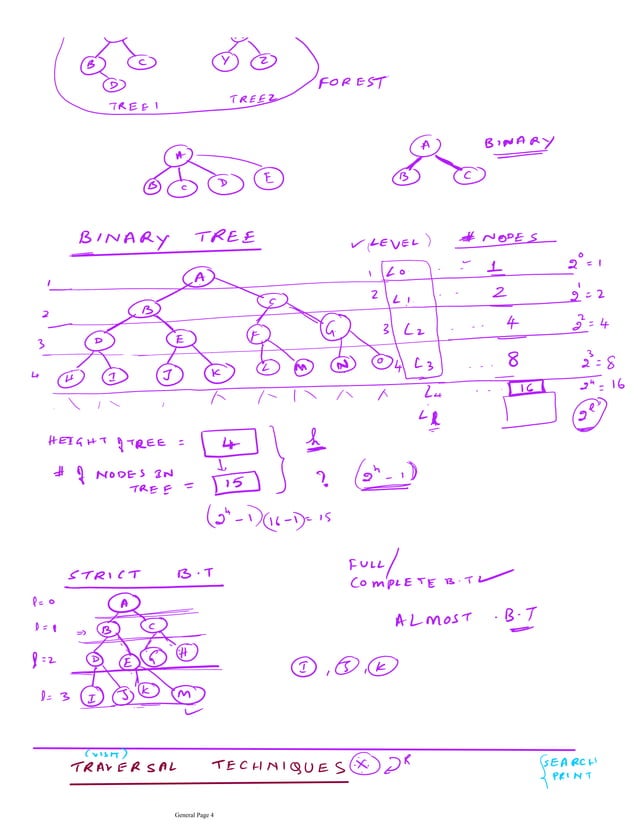 B C Y Z
D
TREE1 TREE2 FOREST
A
B C D E
A BINARY
B C
BINARY TREE (LEVEL) # NODES
1 A 1 L0 -- 1 2^0 = 1
2 B C 2 L1 2 2^1 = 2
3 D E F G 3 L2 ... 4 2^2 = 4
4 H I J K L M N O 4 L3 ... 8 2^3 = 8
L4 ... 16 2^4 = 16
Ll 2^l
HEIGHT OF TREE = 4 h
# OF NODES IN
TREE = 15 ? (2^h - 1)
(2^4 - 1)(16-1) = 15
STRICT B.T
FULL/
COMPLETE B.T
l=0 A
ALMOST . B.T
l=1 => B C
l=2 D E G H
I, J, K
l=3 I J K M
(VISIT)
TRAVERSAL TECHNIQUES
{SEARCH
PRINT
General Page 4